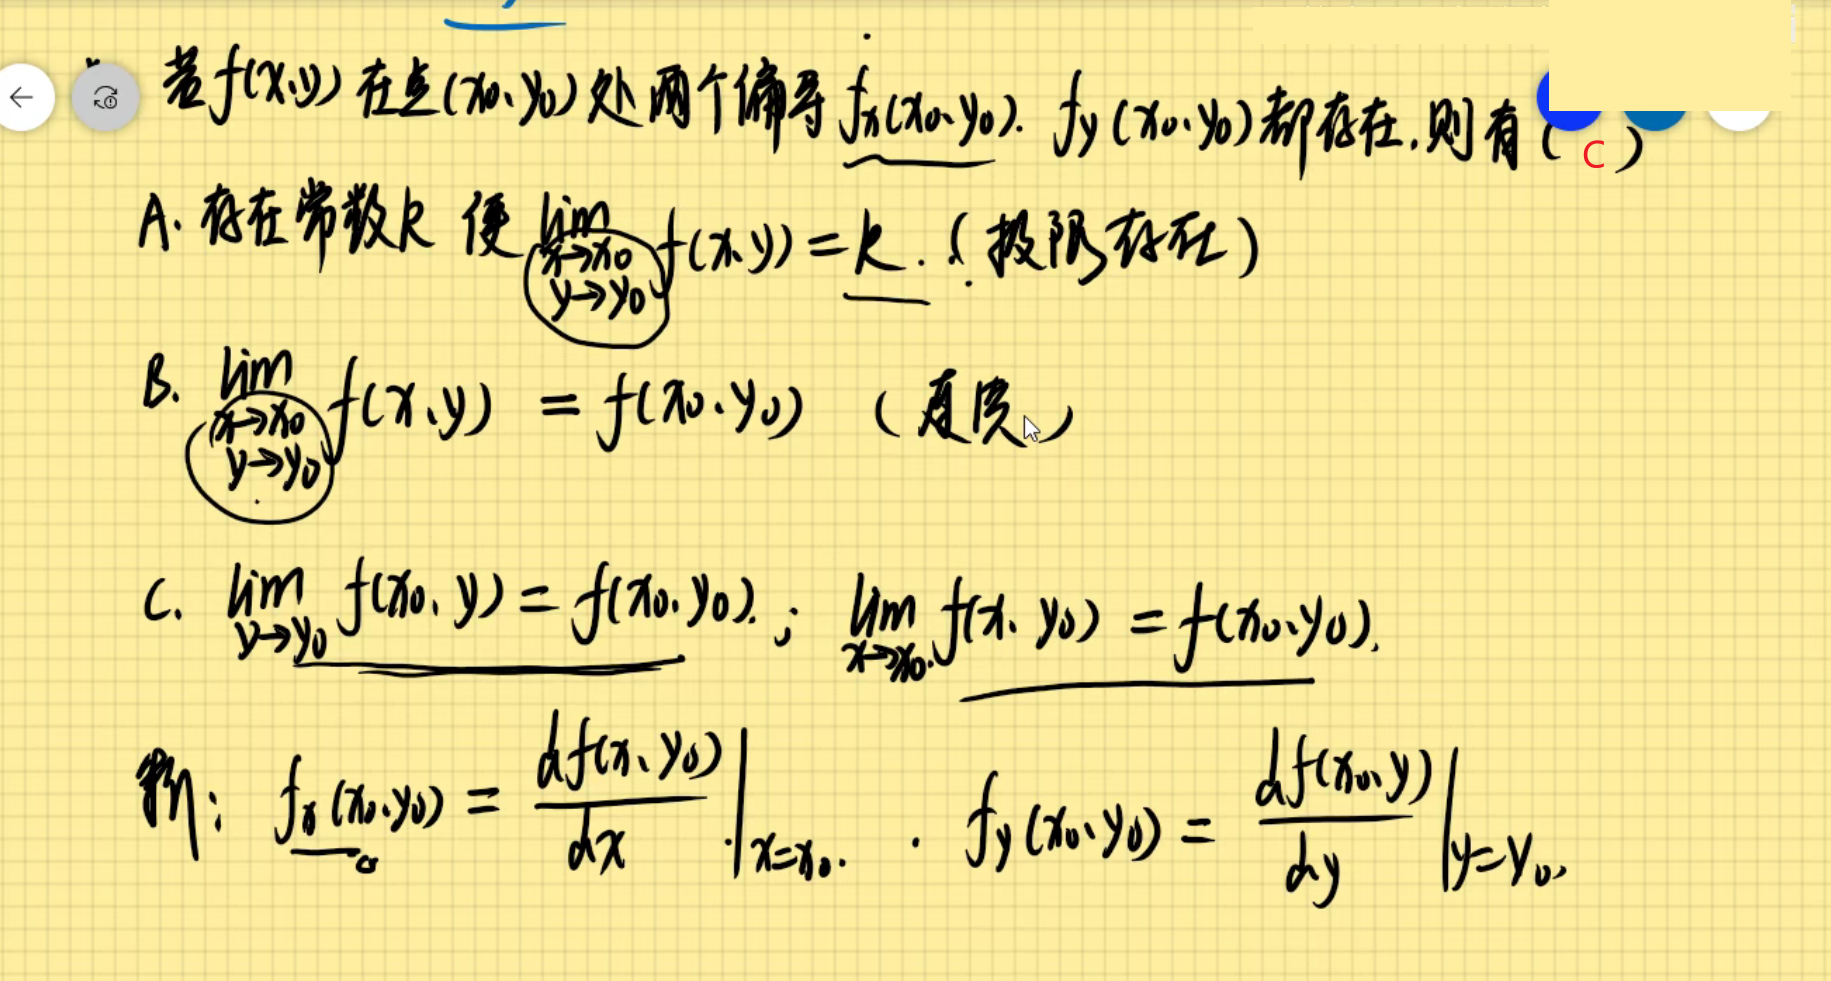 若f(x、y)在点(x₀、y₀)处两个偏导fₓ(x₀、y₀). f_y(x₀、y₀)都存在.则有( C )
A. 存在常数k 使 lim_{x→x₀ y→y₀} f(x、y) = k. (极限存在)
B. lim_{x→x₀ y→y₀} f(x、y) = f(x₀、y₀) (连续)
C. lim_{y→y₀} f(x₀、y) = f(x₀、y₀). ; lim_{x→x₀} f(x、y₀) = f(x₀、y₀).
析: fₓ(x₀、y₀) = df(x、y₀)/dx |_{x=x₀}. f_y(x₀、y₀) = df(x₀、y)/dy |_{y=y₀}.